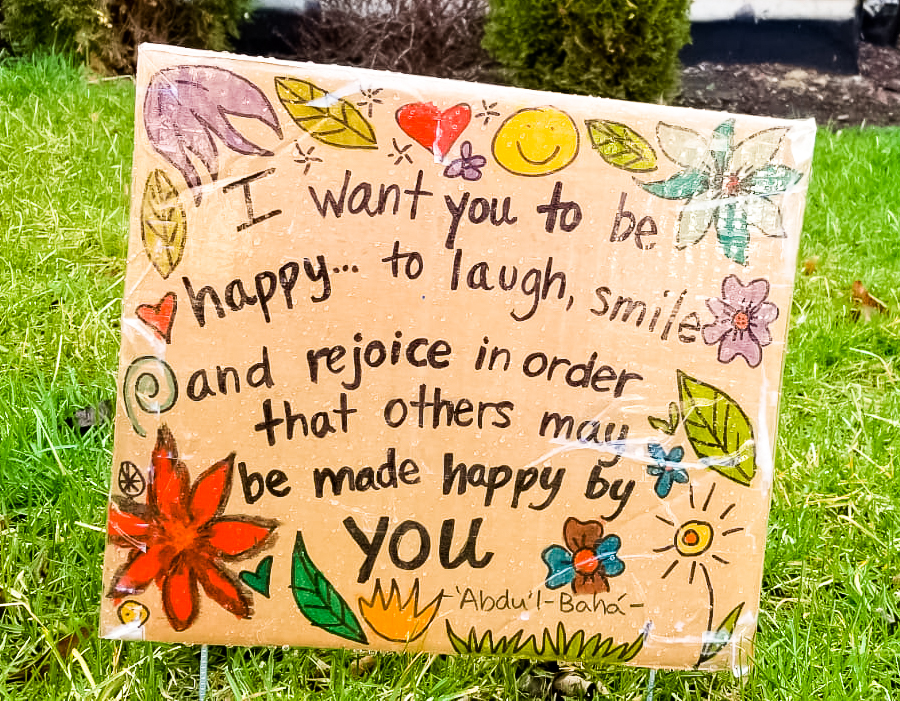 I want you to be
happy... to laugh, smile
and rejoice in order
that others may
be made happy by
you
-'Abdu'l-Bahá-